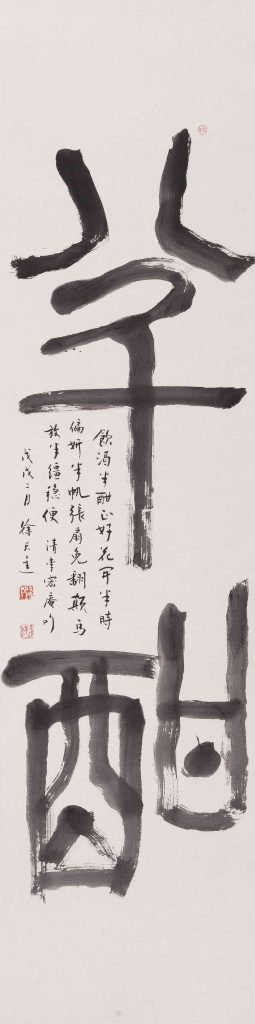 半酣
飲酒半酣正好花開半時
偏妍半帆張扇免翻顛馬
放半繮穩便 清李密庵句
戊戌二月 徐天進